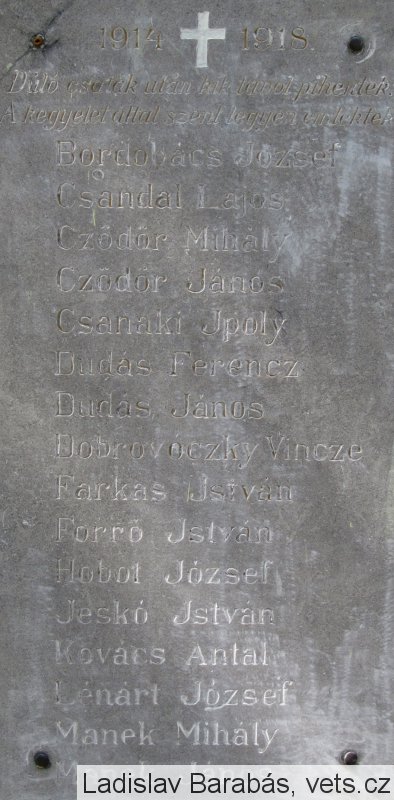 1914 1918.
Dúló csaták után itt távol pihentek.
A kegyelet által szent legyen emléktek
Bordobács József
Csandal Lajos
Cződőr Mihály
Cződőr János
Csanaki Jpoly
Dudás Ferencz
Dudás János
Dobrovoczky Vincze
Farkas István
Forró István
Hobot József
Jeskó István
Kovács Antal
Lénárt József
Manek Mihály
Ladislav Barabás, vets.cz